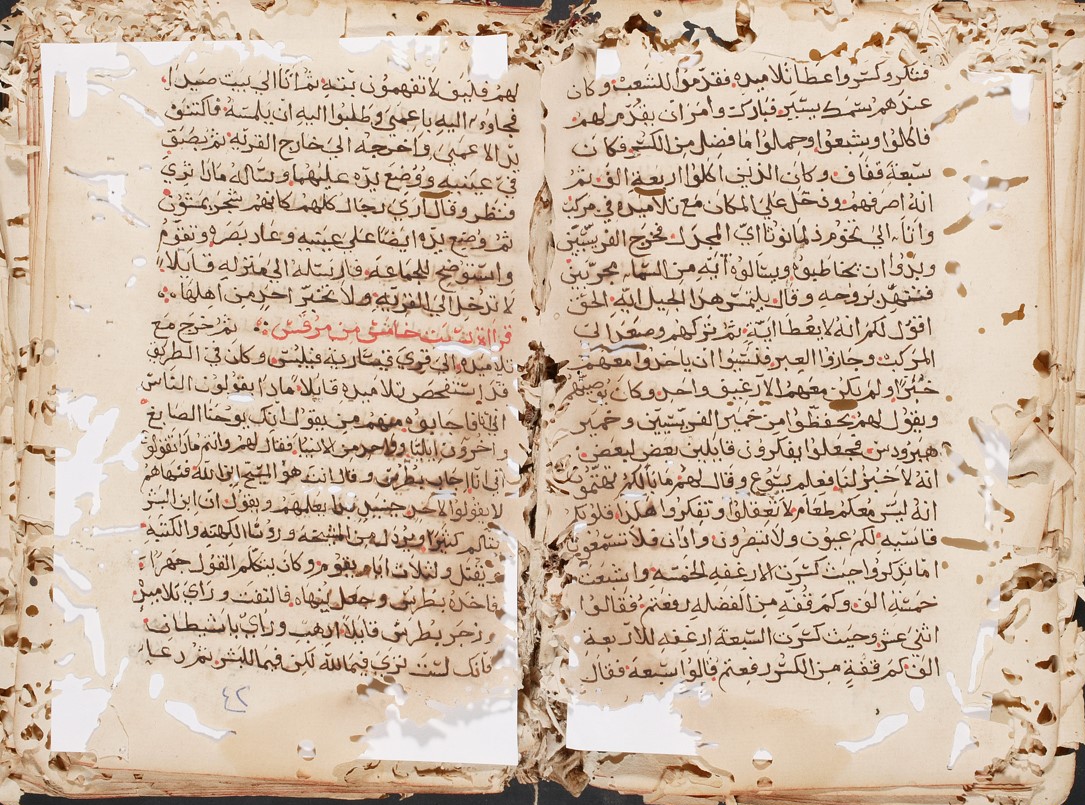 فشكر وكسر واعطا تلاميذه فقدموا للشعب وكان
عندهم سمك يسير فبارك وامر ان يقدم لهم
فاكلوا وشبعوا وحملوا ما فضل من الكسر فكان
سبعة قفاف وكان الذين اكلوا اربعة الف ثم
انه اصرفهم ودخل علي المكان مع تلاميذه في مركب
وانا الي تخوم دلمانوثا اي المجدل فخرج الفريسيين
وبدوا ان يخاطبوه ويسالوه آية من السما مجربين
فتنهد بروحه وقال يلتمس هذا الجيل ايه الحق
اقول لكم انه لا يعطا اليه ثم تركهم وصعد الي
المركب وجازوا العبر فنسوا ان ياخذوا معهم
خبزًا ولم يكن معهم الا رغيف واحد وكان يوصيهم
ويقول لهم تحفظوا من خمير الفريسيين وخمير
هيرودس فجعلوا يفكرون قايلين بعض لبعض
انه لا خبز لنا فعلم يسوع وقال لهم ما بالكم تهتمون
انه ليس معكم طعام لا تعقلوا وتفكروا هكذا قلوبكم
قاسيه لكم عيون ولا تنظرون واذان ولا تسمعون
اما تذكروا حيث كسرت الارغفه الخمسه واشبعت
خمسه الف وكم قفه من الفضله رفعتم فقالوا
اثني عشر وحيث كسرت السبعة ارغفه للاربعه
الف كم قفة من الكسر رفعتم قالوا سبعة فقال
لهم فكيف لا تفهمون بته ثم اتا الي بيت صيدا
فجاوه اليه باعمي وطلبوا اليه ان يلمسه فامسك
يد الاعمي واخرجه الي خارج القريه ثم بصق
في عينيه ووضع يده عليهما وساله ماذا تري
فنظر وقال اري رجال كلهم كانهم شجر يمشون
ثم وضع يده ايضا علي عينيه وعاد بصره وتقوم
واستوضح للجماعه فارسله الي منزله قايلا
لا تدخل الي القريه ولا تخبر احد من اهلها
قراة سبت خامس من مرقس ثم خرج مع
تلاميذه الي قري قيساريه فيلبس وكان في الطريق
قد استفحص تلاميذه قايلا ماذا يقولون الناس
اني انا فاجابوه منهم من يقول انك يوحنا الصابغ
واخرون ايليا واخر من الانبيا فقال لهم وانتم ماذا تقولو
اني انا اجاب بطرس وقال انت هو المسيح ابن الله فنهاهم
لا يقولوا لاحد حينيذ بدا يعلمهم ويقول ان ابن البشر
يتالم كثيرا ويرذل من المشيخه وروسا الكهنه والكتبه
ويقتل ولثلاث ايام يقوم وكان يتكلم القول جهرًا
فاخذه بطرس وجعل ينهاه فالتفت وراي تلاميذ
وزجر بطرس قايلا اذهب وراي يا شيطان
فانك لست تري فيما لله لكن فيما للبشر ثم دعا
٤٢